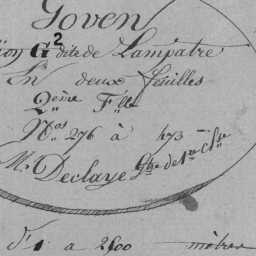 Goven
ion G2 dite de Lampatre
En deux feuilles
2ème Flle
Nos 276 à 473
Mr Declaye Gtre de 1re Clse
de 1 a 2500 mètres